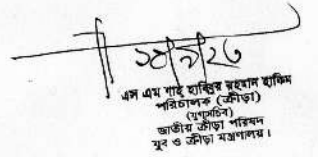 এস এম শাহ্ হাবিবুর রহমান হাকিম
পরিচালক (ক্রীড়া)
(যুগ্মসচিব)
জাতীয় ক্রীড়া পরিষদ
যুব ও ক্রীড়া মন্ত্রণালয়।